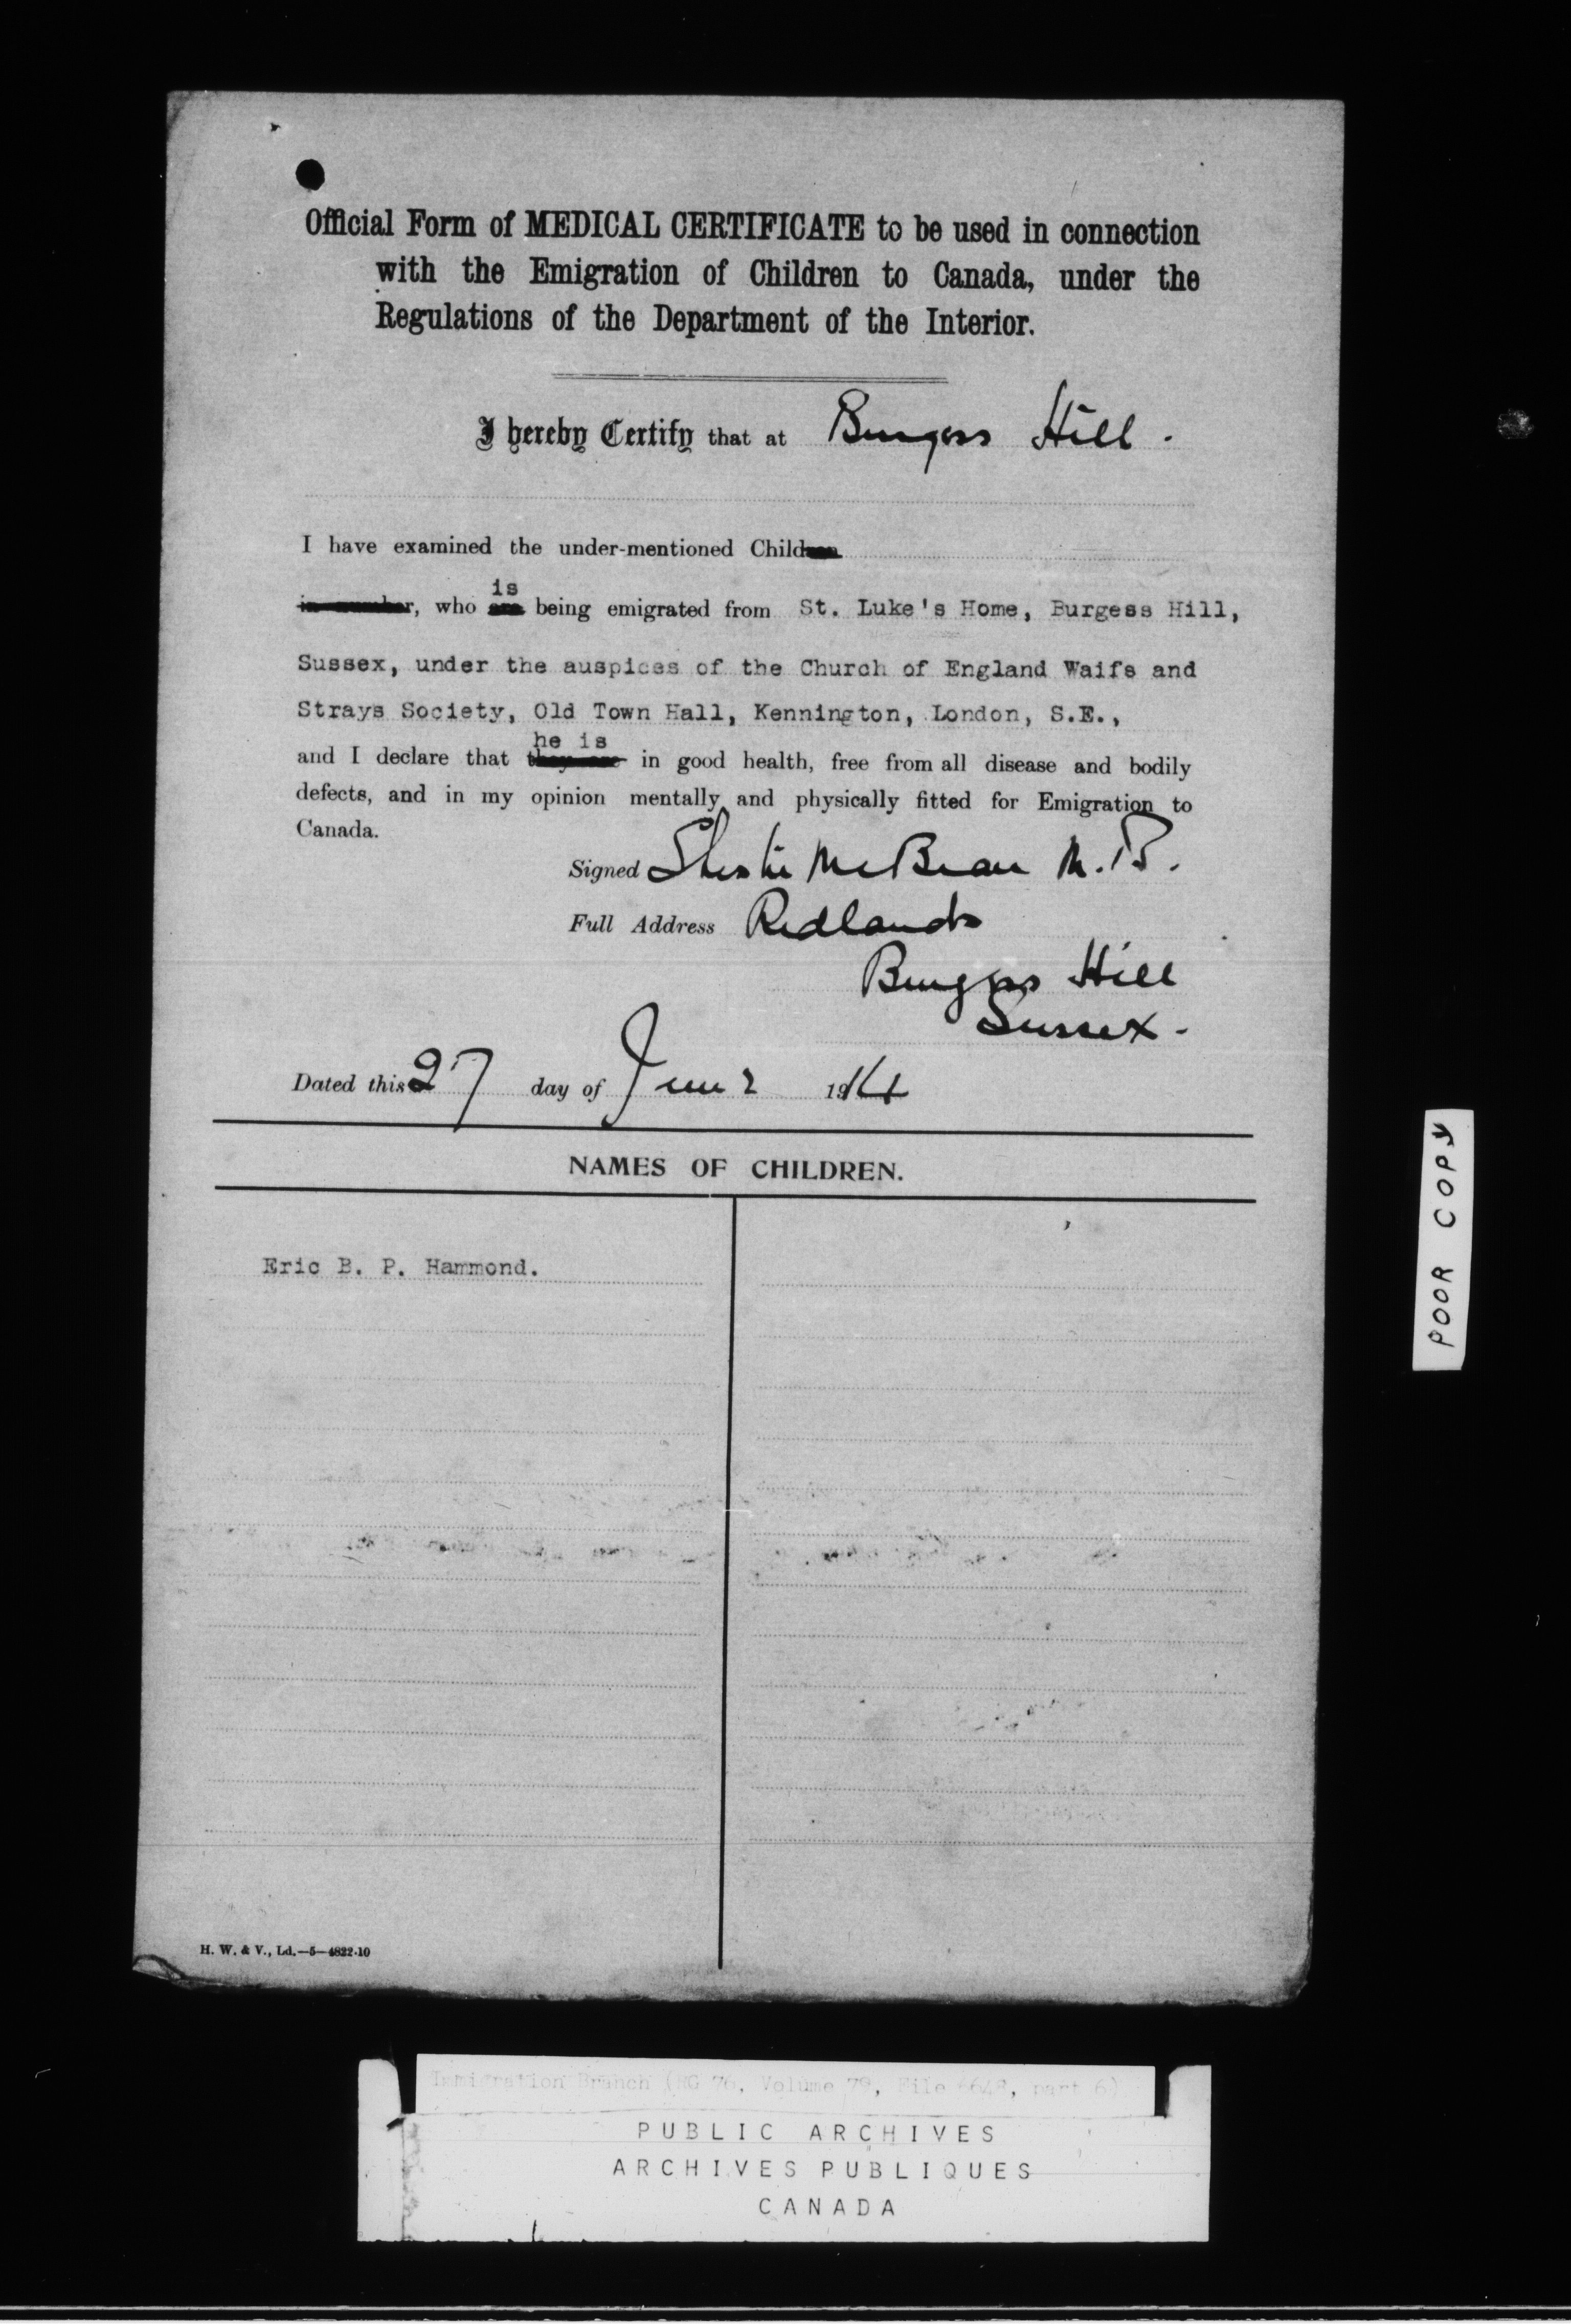 Official Form of MEDICAL CERTIFICATE to be used in connection
with the Emigration of Children to Canada, under the
Regulations of the Department of the Interior.
I hereby Certify that at Burgess Hill.
I have examined the under-mentioned Children
is
in number, who are being emigrated from St. Luke's Home, Burgess Hill,
Sussex, under the auspices of the Church of England Waifs and
Strays Society, Old Town Hall, Kennington, London, S.E.,
he is
and I declare that they are in good health, free from all disease and bodily
defects, and in my opinion mentally and physically fitted for Emigration to
Canada.
Signed McBean M.B.
Full Address Redlands
Burgess Hill
Sussex.
Dated this 27 day of June 1914
NAMES OF CHILDREN.
Eric B. P. Hammond.
H. W. & V., Ld.—5—4822-10
POOR COPY
Immigration Branch (RG 76, Volume 79, File 6648, part 6)
PUBLIC ARCHIVES
ARCHIVES PUBLIQUES
CANADA